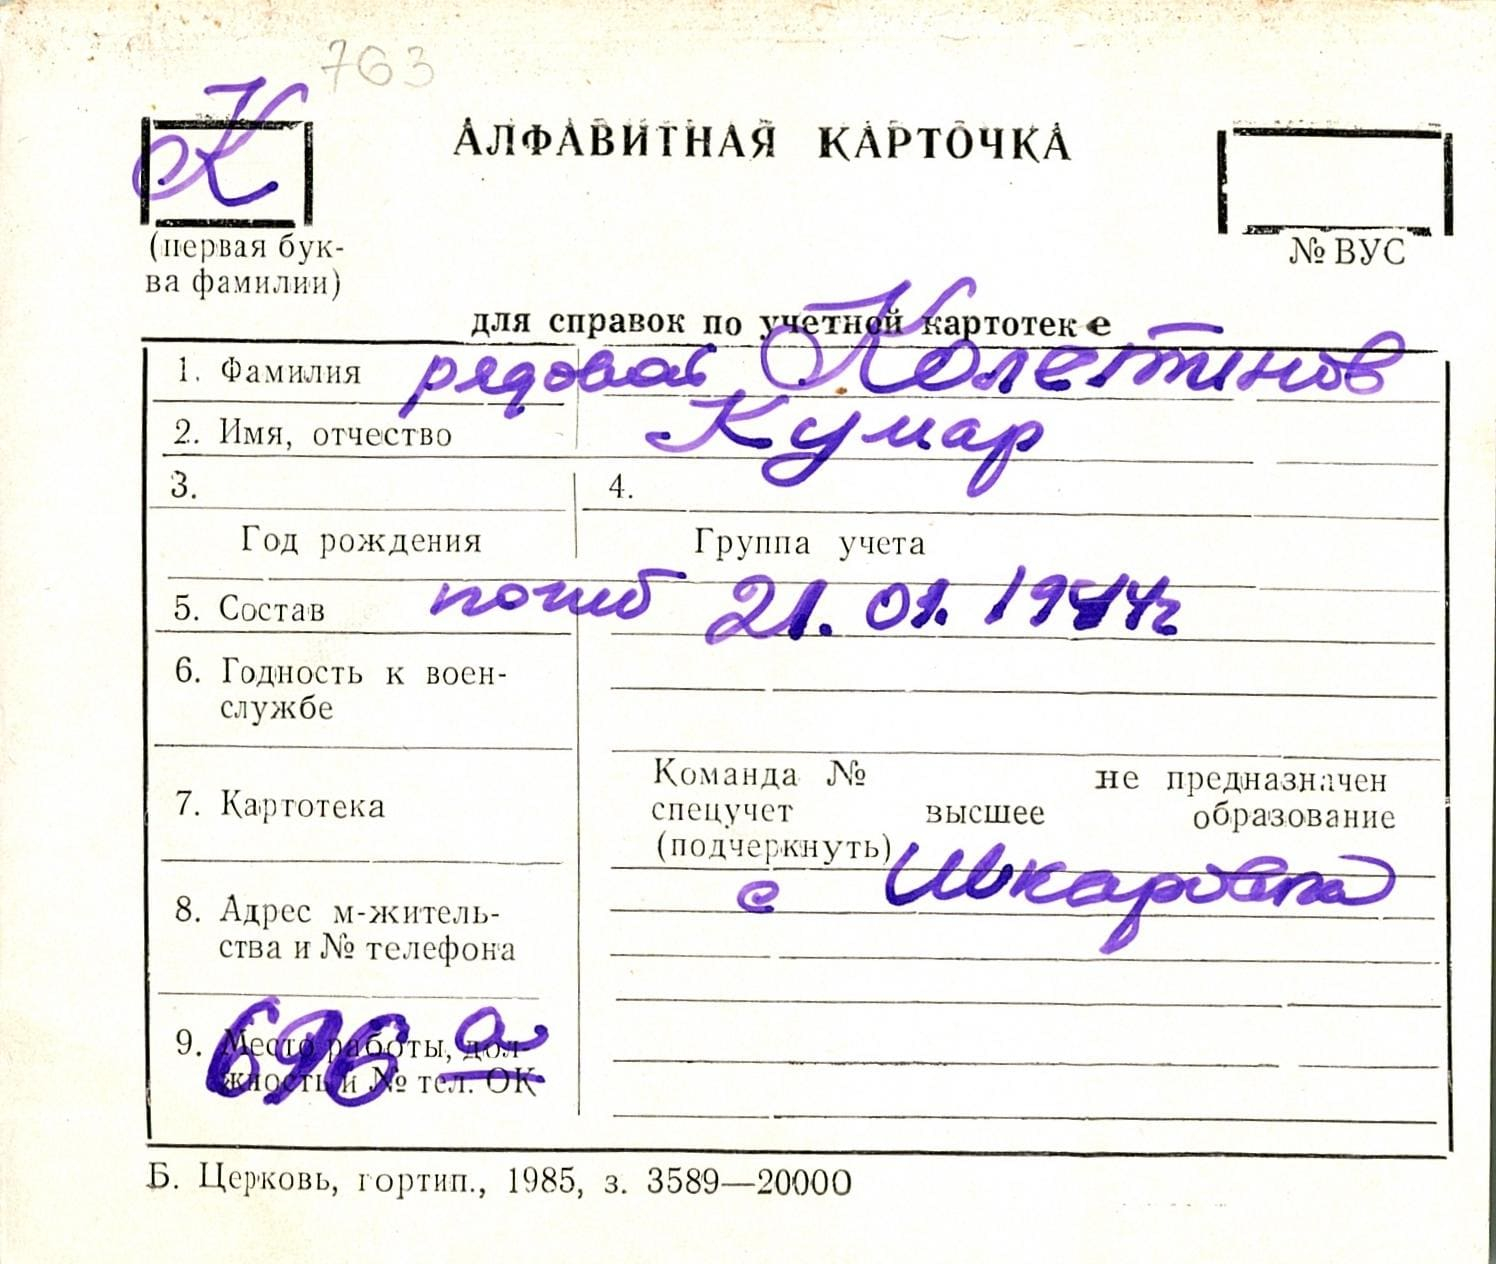 763
К
АЛФАВИТНАЯ КАРТОЧКА
(первая бук-
ва фамилии)
№ ВУС
для справок по учетной картотеке
1. Фамилия рядовой Колетинов
2. Имя, отчество Кумар
3.
4.
Год рождения
Группа учета
5. Состав погиб 21.01.1944г
6. Годность к воен-
службе
7. Картотека
Команда № не предназначен
спецучет высшее образование
(подчеркнуть)
8. Адрес м-житель-
ства и № телефона
с Шкаровка
9. Место работы, дол-
жность и № тел. ОК
696 а
Б. Церковь, гортип., 1985, з. 3589—20000